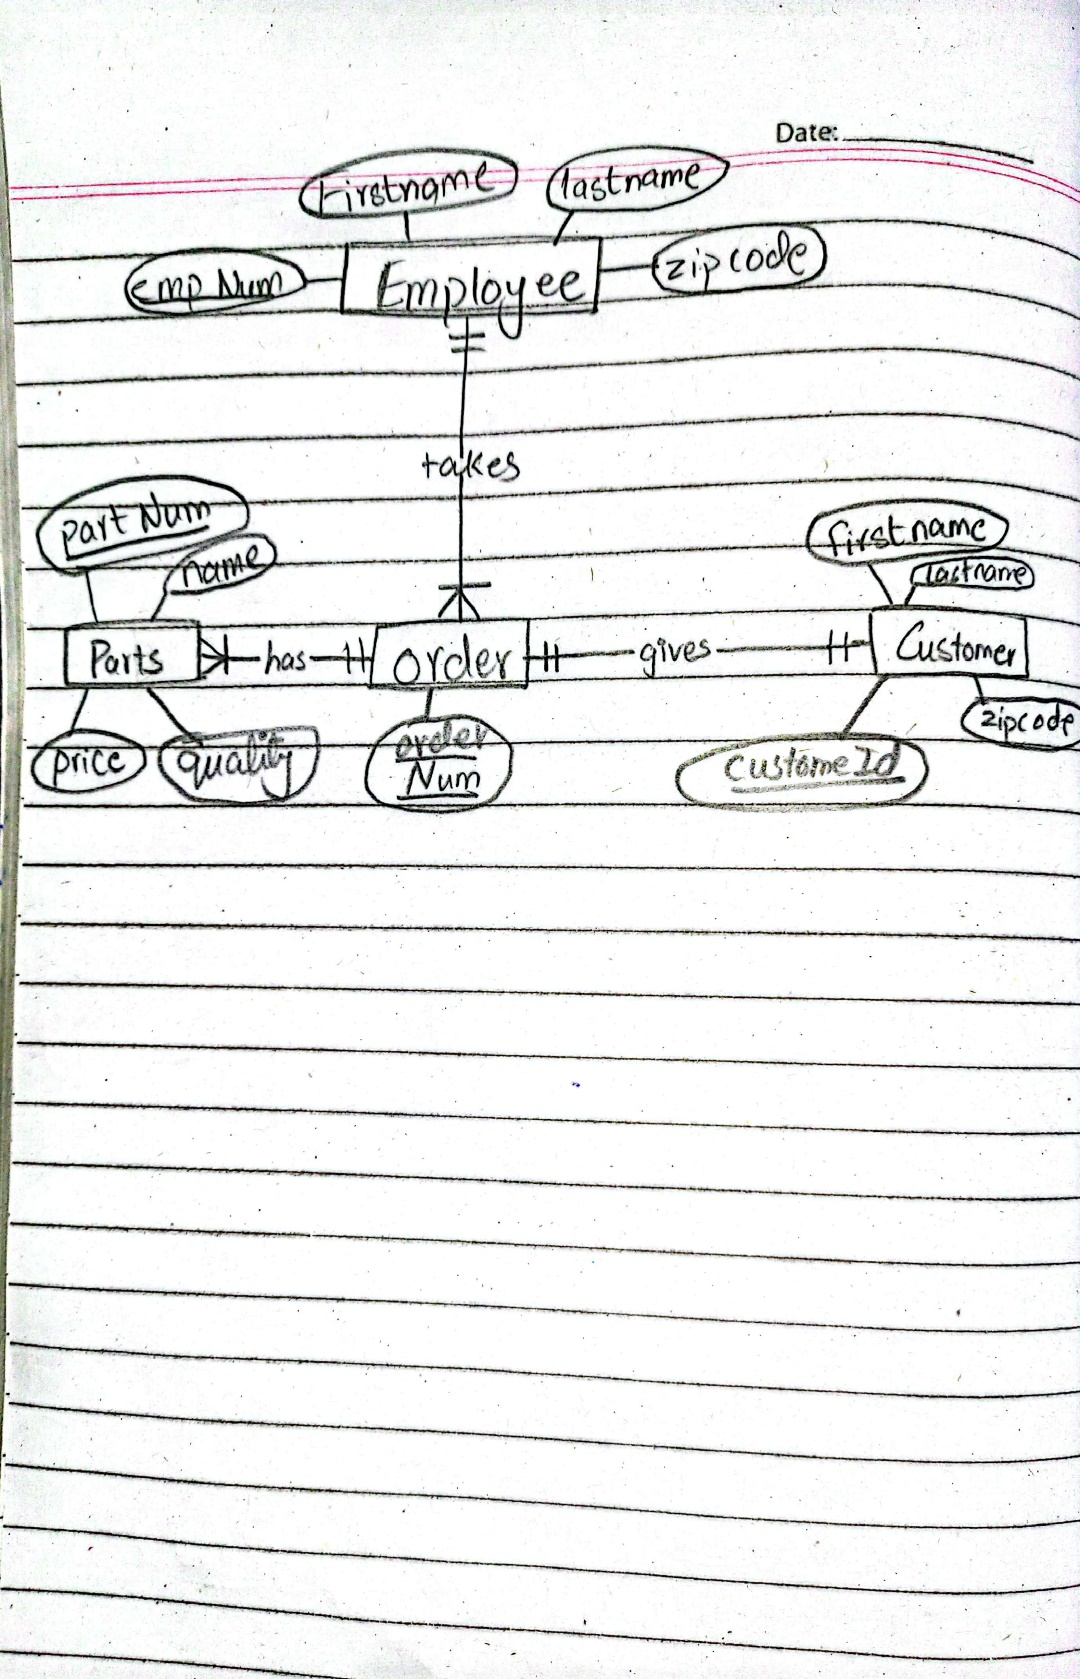 Date:
Firstname
lastname
emp Num
Employee
zipcode
takes
part Num
name
firstname
lastname
Parts
has
order
gives
Customer
price
quality
order
Num
custome Id
zipcode